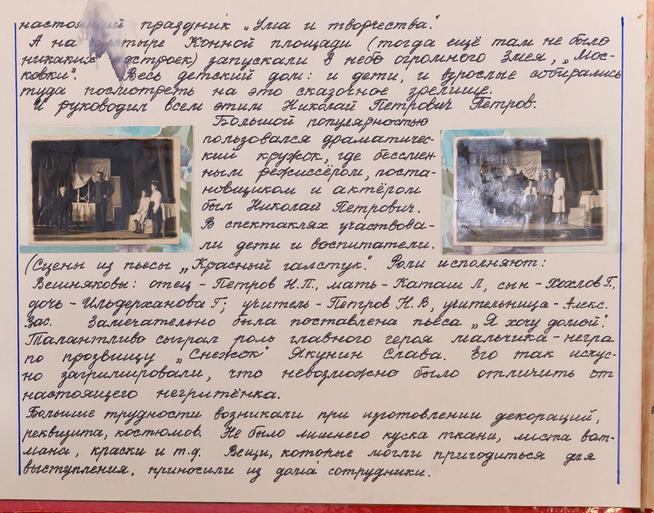 настоящий праздник „Ума и творчества."
А на пустыре Конной площади (тогда ещё там не было
никаких построек) запускали в небо огромного Змея, „Мос-
ковки". Весь детский дом: и дети, и взрослые собирались
туда посмотреть на это сказочное зрелище.
И руководил всем этим Николай Петрович Петров.
Большой популярностью
пользовался драматичес-
кий кружок, где бессмен-
ным режиссёром, поста-
новщиком и актёром
был Николай Петрович.
В спектаклях участвова-
ли дети и воспитатели.
(Сцены из пьесы „Красный галстук". Роли исполняют:
Вешняковы: отец - Петров Н.П., мать - Каташ Л, сын - Хохлов Г,
дочь - Ильдерханова Г; учитель - Петров Н.В, учительница - Алекс.
Зас. Замечательно была поставлена пьеса „Я хочу домой".
Талантливо сыграл роль главного героя мальчика-негра
по прозвищу „Снежок" Якунин Слава. Его так искус-
но загримировали, что невозможно было отличить от
настоящего негритёнка.
Большие трудности возникали при изготовлении декораций,
реквизита, костюмов. Не было лишнего куска ткани, листа ват-
мана, краски и т.д. Вещи, которые могли пригодиться для
выступления, приносили из дома сотрудники.